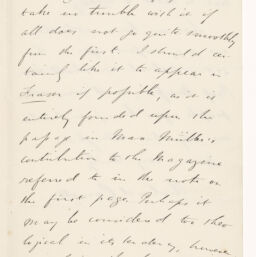 take no trouble with it if
all does not go quite smoothly
from the first. I should cer-
tainly like it to appear in
Fraser if possible, as it is
entirely founded upon the
passage in Max Müller's
contribution to the Magazine
referred to in the note on
the first page. Perhaps it
may be considered too theo
logical in its tendency,